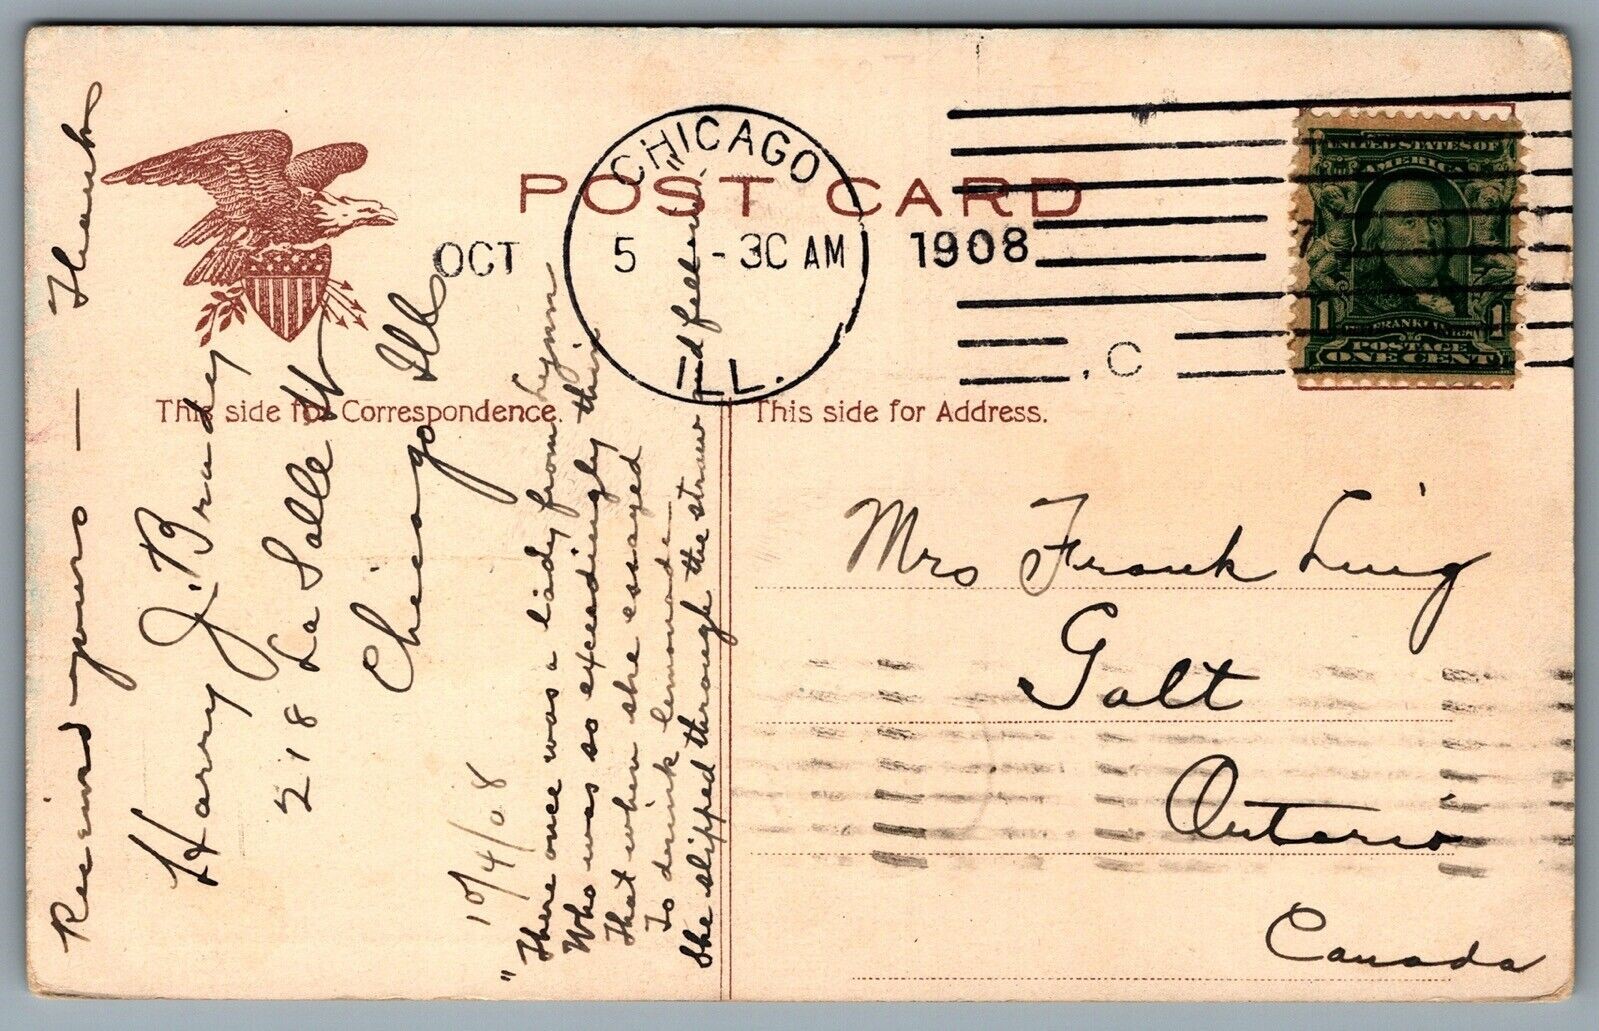 POST CARD
CHICAGO
OCT 5 -3C AM 1908
ILL.
.C
UNITED STATES OF
AMERICA
1 1
FRANKLIN
POSTAGE
ONE CENT
This side for Correspondence.
This side for Address.
Received yours — Thanks
Harry J. Braday
218 La Salle St
Chicago Ills
10/4/08
"There once was a lady from Lynn
Who was so exceedingly thin
That when she essayed
To drink lemonade
She slipped through the straw and fell in"
Mrs Frank Luig
Galt
Ontario
Canada